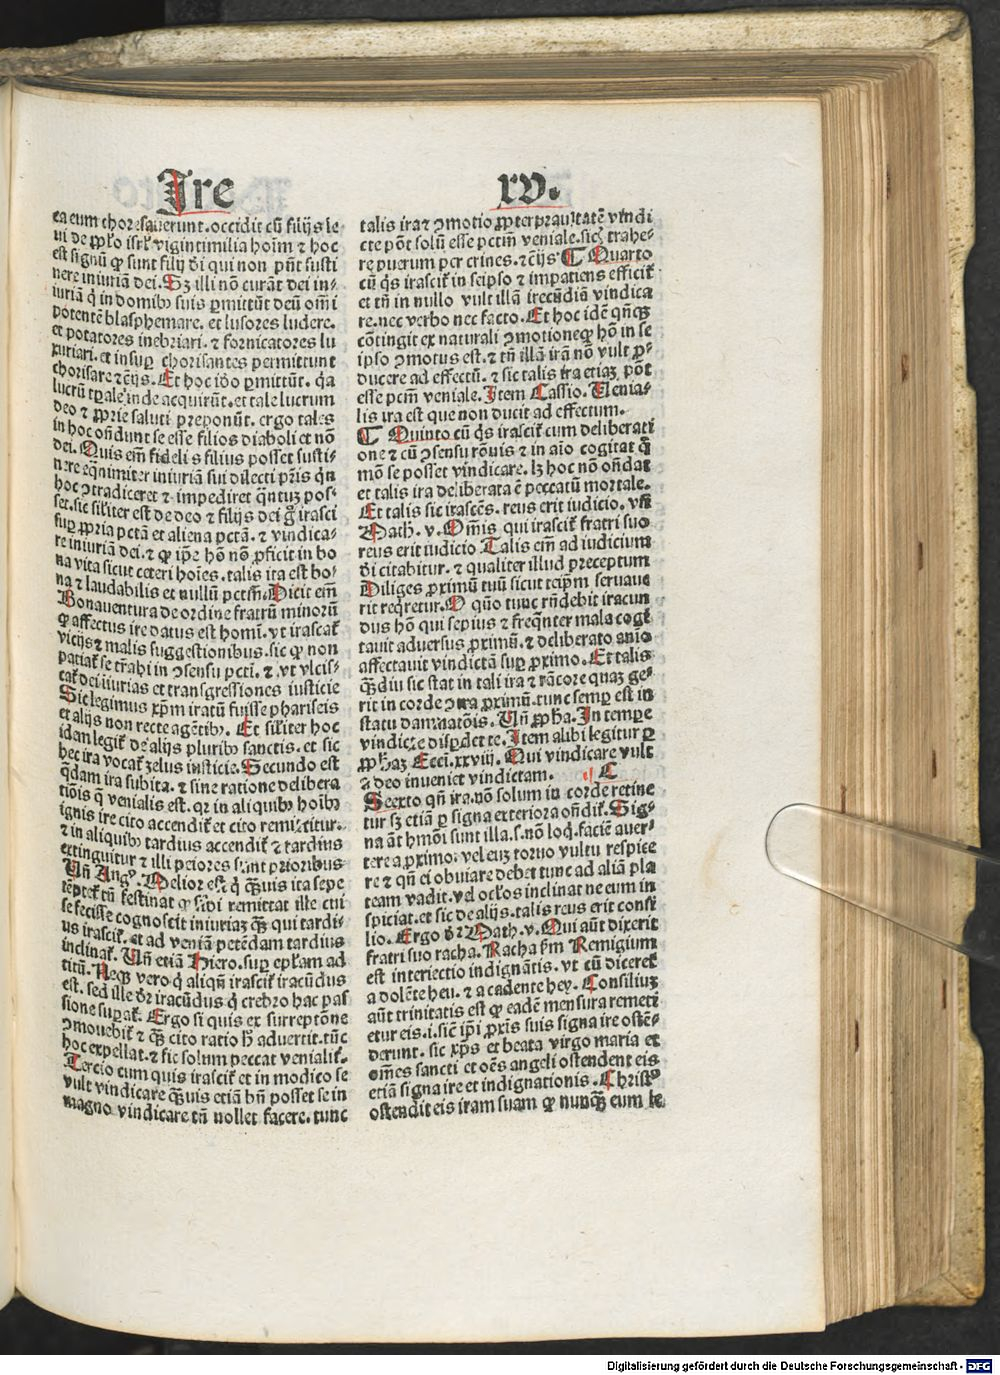 Ire
xv.
ea eum chorezauerunt. occidit cū filijs le
ui de ꝓplo isrl' vigintimilia hoīm ⁊ hoc
est signū ꝙ sunt filij dei qui non pn̄t susti
nere iniuriā dei. Sꝫ illi nō curāt dei in⸗
iuriā q̇ in domibꝰ suis ꝑmittūt deū om̄i
potentē blasphemare. et lusores ludere.
et potatores inebriari. ⁊ fornicatores lu
xuriari. et insuꝑ chorisantes permittunt
chorisare ⁊ cetē̄s. Et hoc iō ꝑmittūt. q̇a
lucrū tꝑale inde acquirūt. et tale lucrum
deo ⁊ ꝓprie saluti preponūt. ergo tales
in hoc on̄dunt se esse filios diaboli et nō
dei. Quis em̄ fidelis filius posset susti⸗
nere eq̄nimiter iniuriā sui dilecti pr̄is q̄n
hoc ↄtradiceret ⁊ impediret q̄ntuꝫ pos⸗
set. sic sil'iter est de deo ⁊ filijs dei g̊ irasci
suꝑ ꝓpria pctā et aliena pctā. ⁊ vindica⸗
re iniuriam dei. ⁊ ꝙ ip̄e hō nō ꝓficit in bo
na vita sicut ceteri hoīes. talis ira est bo⸗
na ⁊ laudabilis et nullū pctm̄. Dicit em̄
Bonauentura de ordine fratrū minorū
ꝙ affectus ire datus est homī. vt irascat̄
vicijs ⁊ malis suggestionibus. sic ꝙ non
patiat̄ se tr̄ahi in ↄsensu pcti. ⁊ vt vlcis⸗
cat̄ dei iiurias et transgressiones iusticie
Sic legimus xp̄m iratū fuisse phariseis
et alijs non recte agētibꝰ. Et sil'iter hoc
idan legit̄ de alijs pluribꝰ sanctis. et sic
hec ira vocat̄ zelus iusticie. Secundo est
q̄dam ira subita. ⁊ sine ratione delibera
tiōis q̄ venialis est. qꝛ in aliquibꝰ hoībꝰ
ignis ire cito accendit̄ et cito remittitur.
⁊ in aliquibꝰ tardius accendit̄ ⁊ tardius
extinguitur ⁊ illi peiores sunt prioribus
Vn̄ Augꝰ. Melior est q̇ q̄̄uis ira sepe
tēptet̄ tn̄ festinat ꝙ sibi remittat ille cui
se fecisse cognoscit iniuriaꝫ q̄̄ qui tardi⸗
us irascit̄. et ad veniā petēdam tardius
inclinat̄. Vn̄ etiā Hiero. suꝑ epl'am ad
titū. Neqꝫ vero q̇ aliqn̄ irascit̄ iracūdus
est. sed ille dr̄ iracūdus q̇ crebro hac pas
sione suꝑat̄. Ergo si quis ex surreptōne
ↄmouebit̄ ⁊ q̄̄ cito ratio h̄ aduertit. tūc
hoc expellat. ⁊ sic solum peccat venialit̄.
Tercio cum quis irascit̄ et in modico se
vult vindicare q̄̄uis etiā bn̄ posset se in
magno vindicare tn̄ nollet facere. tunc
talis ira ⁊ ↄmotio ꝓpter prauitatē vindi
cte pōt solū esse pctm̄ veniale. sicꝫ trahe⸗
re puerum per crines. ⁊ cetē̄s ¶ Quarto
cū q̇s irascit̄ in seipso ⁊ impatiens efficit̄
et tn̄ in nullo vult illā irecūdiā vindica
re. nec verbo nec facto. Et hoc idē qn̄qꝫ
cōtingit ex naturali ↄmotioneqꝫ hō in se
ipso ↄmotus est. ⁊ tn̄ illā irā nō vult ꝓ⸗
ducere ad effectū. ⁊ sic talis ira etiaꝫ pōt
esse pcm̄ veniale. Item Cassio. Venia⸗
lis ira est que non ducit ad effectum.
¶ Quinto cū q̇s irascit̄ cum deliberati
one ⁊ cū ↄsensu rōnis ⁊ in aīo cogitat q̄
mō se posset vindicare. lꝫ hoc nō on̄dat
et talis ira deliberata ē peccatū mortale.
Et talis sic irascēs. reus erit iudicio. vn̄
Math. v. Om̄is qui irascit̄ fratri suo
reus erit iudicio. Talis em̄ ad iudicium
dei citabitur. ⁊ qualiter illud preceptum
Diliges proximū tuū sicut teip̄m seruaue
rit req̇retur. O quō tunc rn̄debit iracun
dus hō qui sepius ⁊ freq̄nter mala cogi
tauit aduersus proximū. ⁊ deliberato anīo
affectauit vindictā suꝑ proximo. Et talis
q̄̄diu sic stat in tali ira ⁊ rācore quaꝫ ge⸗
rit in corde ↄtra proximū. tunc semꝑ est in
statu damnatōis. Vn̄ ꝓpha. In tempe
vindicte disꝑdet te. Item alibi legitur ꝑ
ꝓphaꝫ Ecci. xxviij. Qui vindicare vult
a deo inueniet vindictam. C
Seexto qn̄ ira. nō solum in corde retine
tur sꝫ etiā ꝑ signa exteriora on̄dit̄. Sig⸗
na āt hmōi sunt illa. s. nō loq̇. faciē auer⸗
tere a proximo. vel euꝫ toruo vultu respice
re ⁊ qn̄ ei obuiare debet tunc ad aliā pla
team vadit. vel ocl'os inclinat ne eum in
spiciat. et sic de alijs. talis reus erit consi
lio. Ergo dr̄ Math. v. Qui aūt dixerit
fratri suo racha. Racha ẜm Remigium
est interiectio indignātis. vt cū diceret̄
a dolēte heu. ⁊ a cadente hey. Consiliuꝫ
aūt trinitatis est ꝙ eadē mensura remeti
etur eis. i. sicut ip̄i proxīs suis signa ire ostē⸗
derunt. sic xp̄s et beata virgo maria et
om̄es sancti et oēs angeli ostendent eis
etiā signa ire et indignationis. Christꝰ
ostendit eis iram suam ꝙ nunq̄̄ eum le
Digitalisierung gefördert durch die Deutsche Forschungsgemeinschaft - DFG